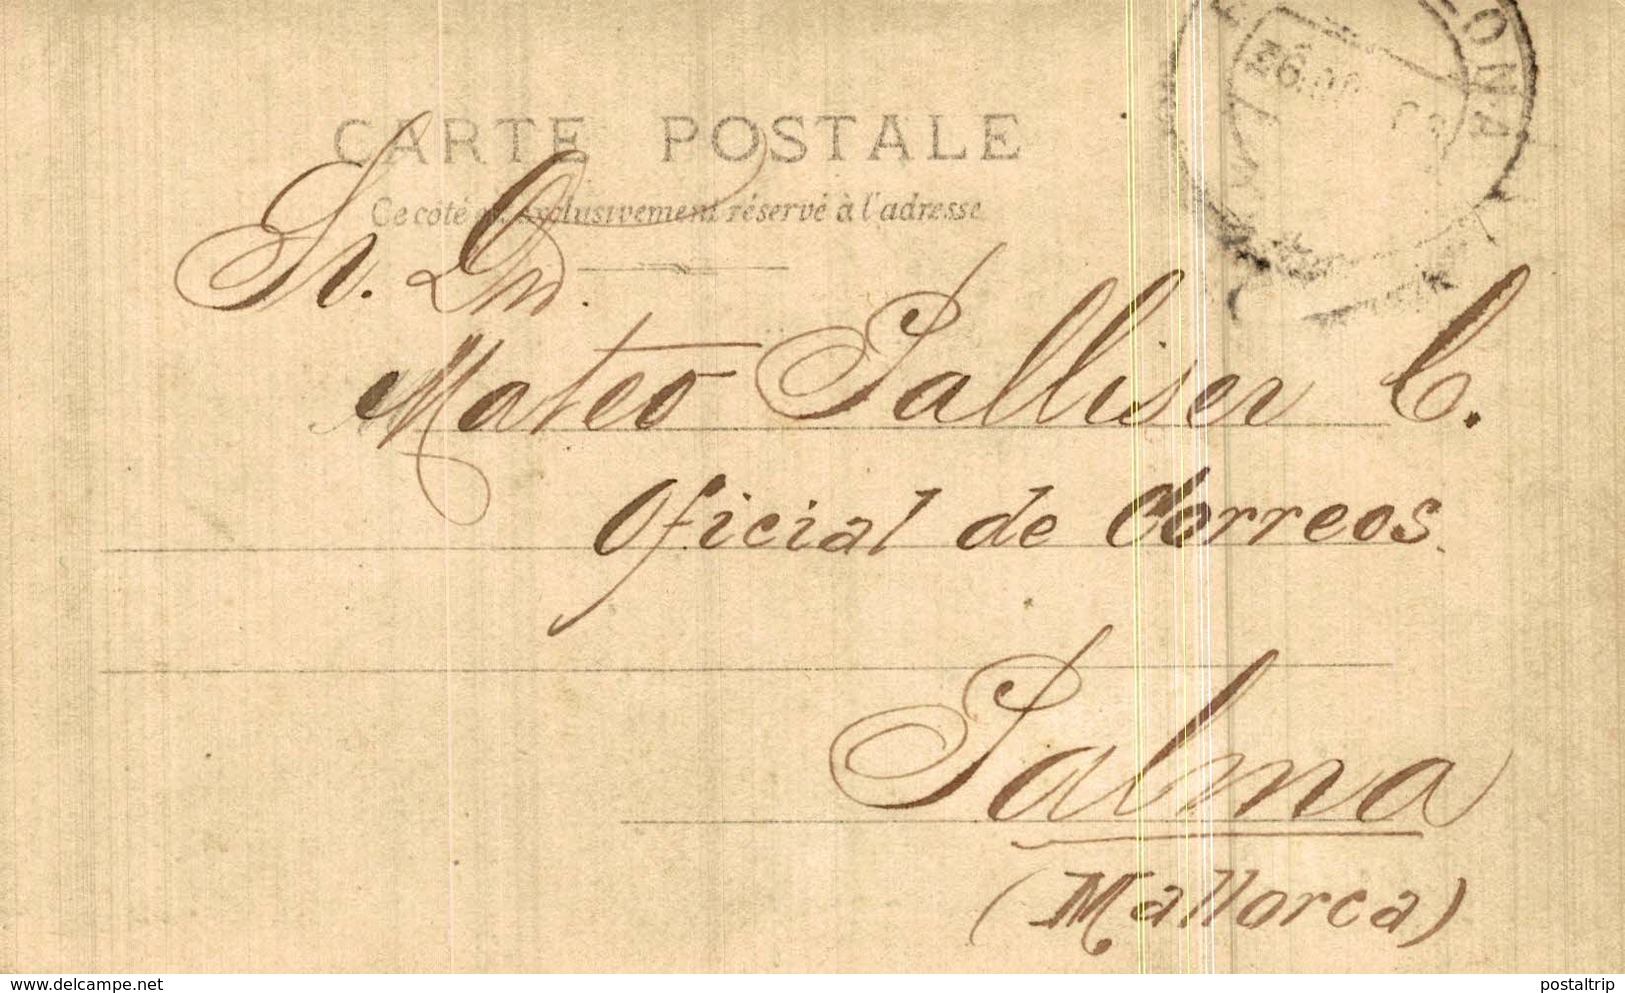 CARTE POSTALE
Ce côté exclusivement réservé à l'adresse
Sr. Dn.
Mateo Palliser C.
Oficial de Correos.
Palma
(Mallorca)
delcampe.net
postaltrip